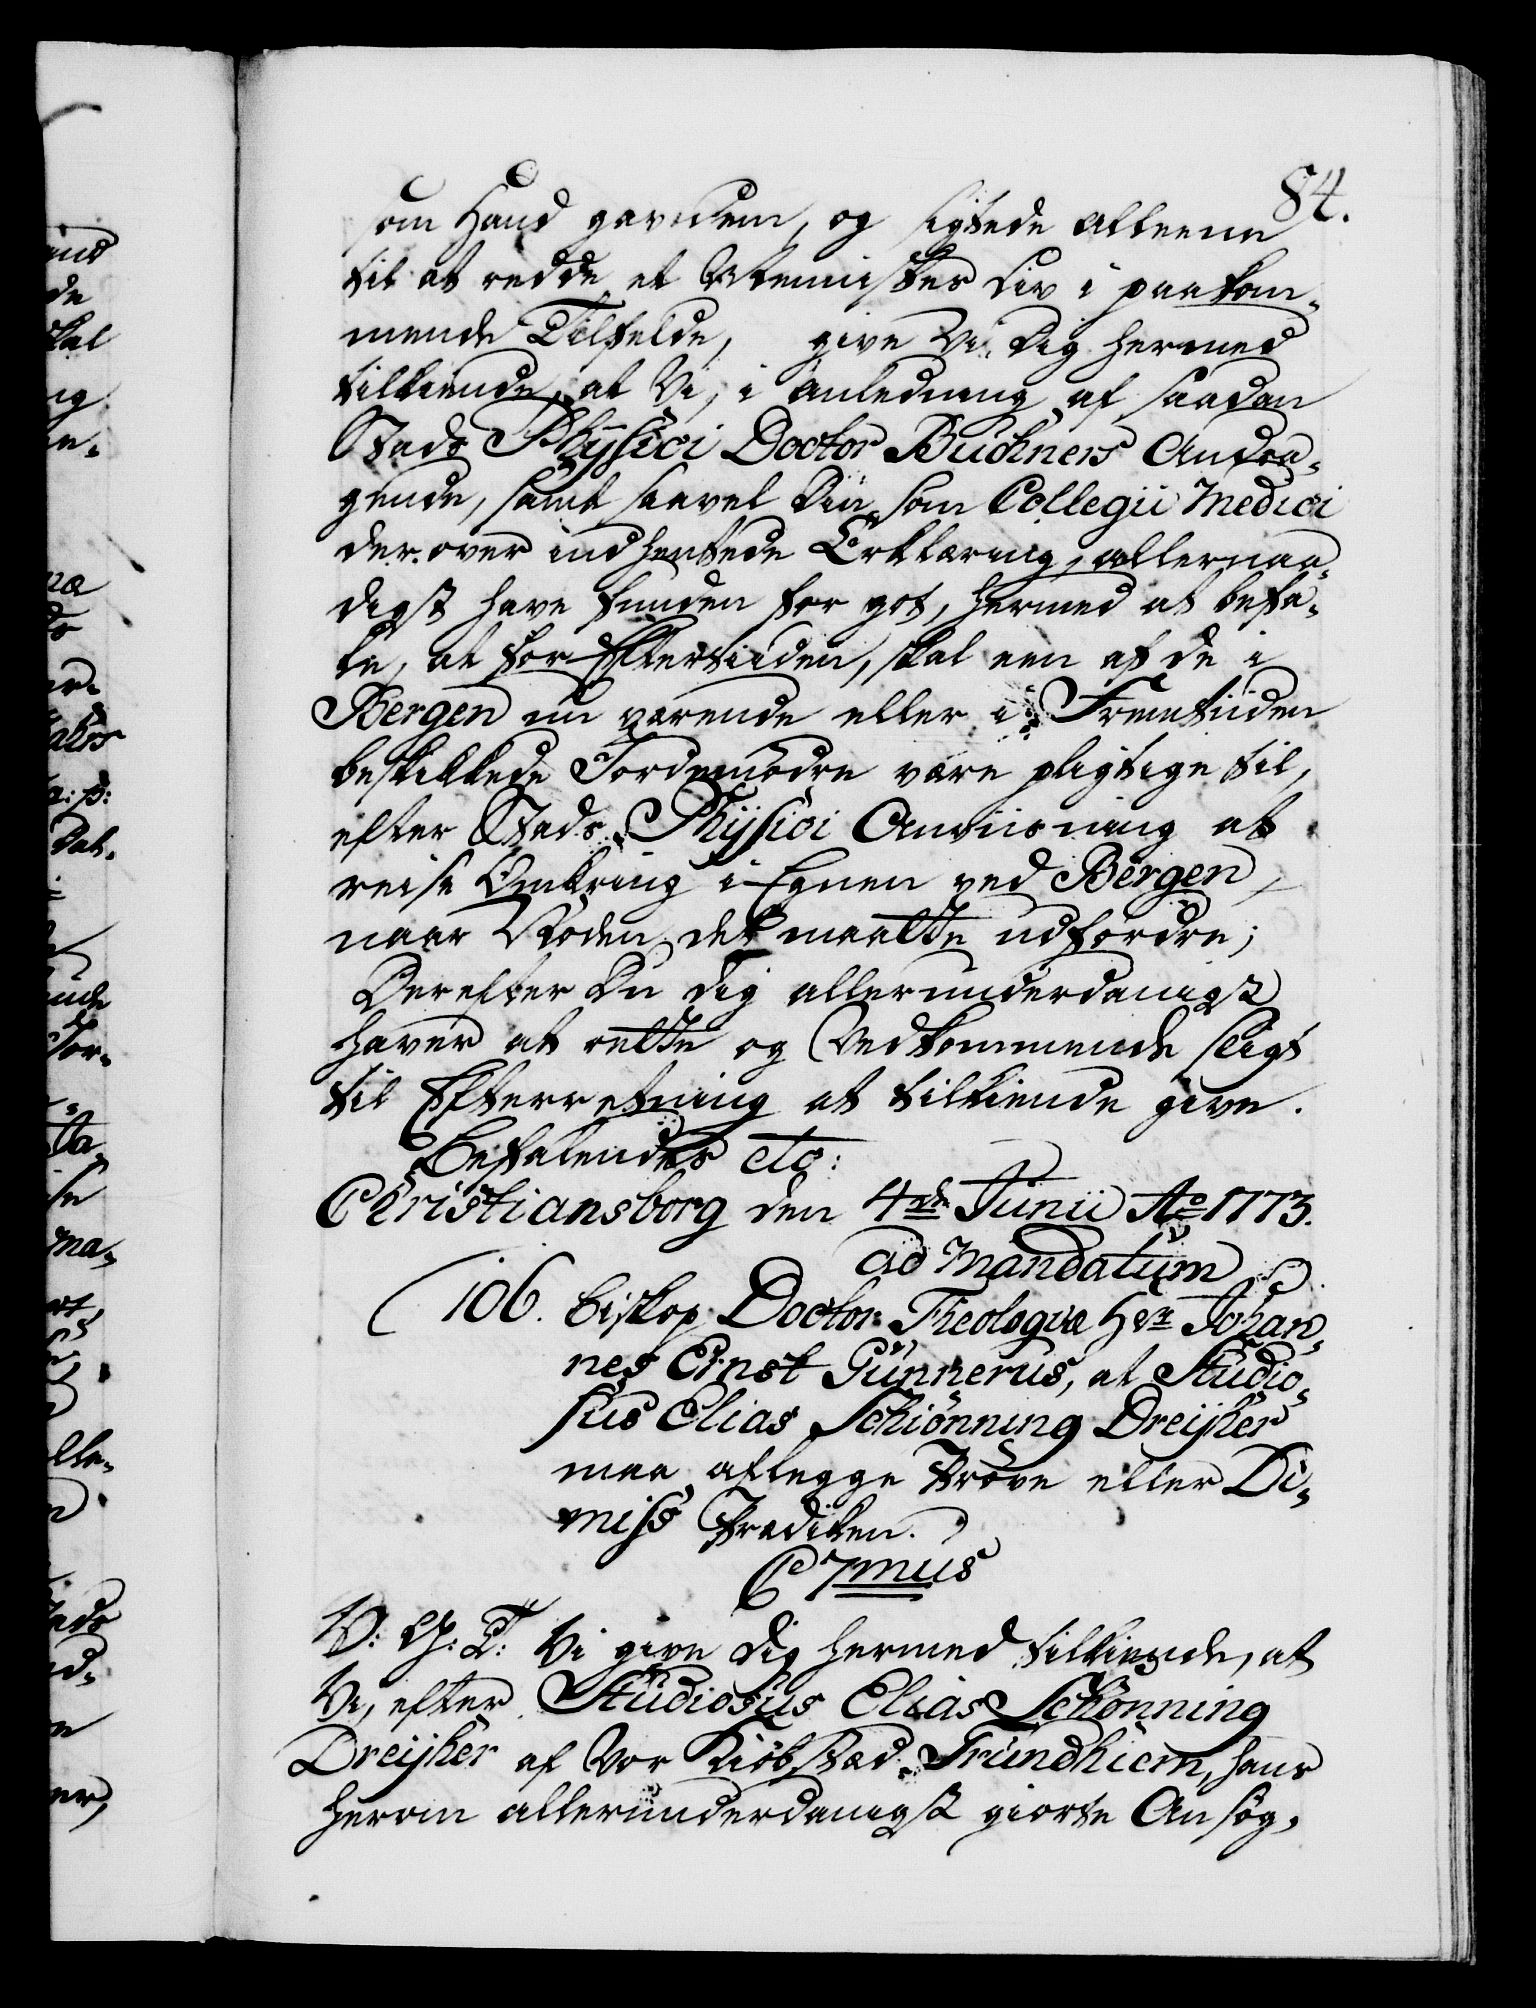 84.
som Haand gav dem, og sigtede alleene
til at redde et Menniskes Liv i paakom-
mende Tilfælde, give Vi Dig hermed
tilkiende, at Vi, i Anledning af saadan
Stads Physici Doctor Büchners Andra-
gende, samt saavel Din som Collegii Medici
der over indhentede Erklæring, allernaa-
digst have funden for got, hermed at befa-
le, at for Eftertiiden, skal een af de i
Bergen nu værende eller i Fremtiiden
beskikkede Jordemødre være pligtige til,
efter Stads Physici Anviisning at
reise omkring i Egnen ved Bergen,
naar Nøden det maatte udfordre;
Derefter Du Dig allerunderdanigst
haver at rette og Vedkommende sligt
til Efterretning at tilkiende give.
Befalendes etc:
Christiansborg den 4de Junii Ao 1773.
ad Mandatum
106. Biskop Doctor Theologiæ Hr Johan-
nes Ernst Günnerus, at Studio-
sus Elias Schiønning Dreijer
maa aflegge Prøve eller Di-
miss Prædiken.
C 7mus
V: G: T: Vi give Dig hermed tilkiende, at
Vi, efter Studiosus Elias Schønning
Dreijer af Vor Kiøbstæd Trundhiem, hans
herom allerunderdanigst giorte Ansøg-